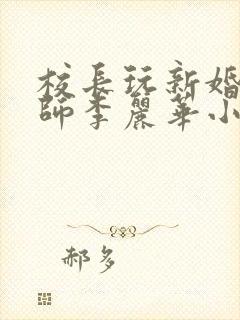 校長玩新婚
師李麗華小
郝多